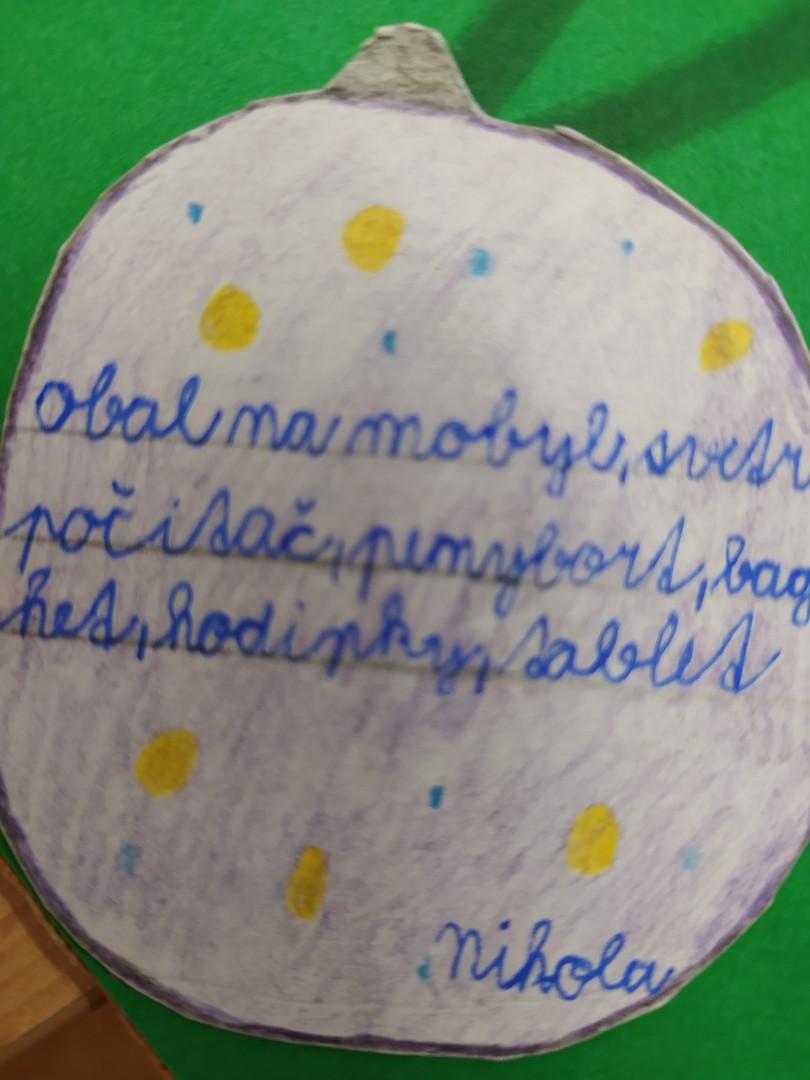 obal na mobyl, svetr
počitač, penybort, bag
het, hodinky, tablet
Nikola